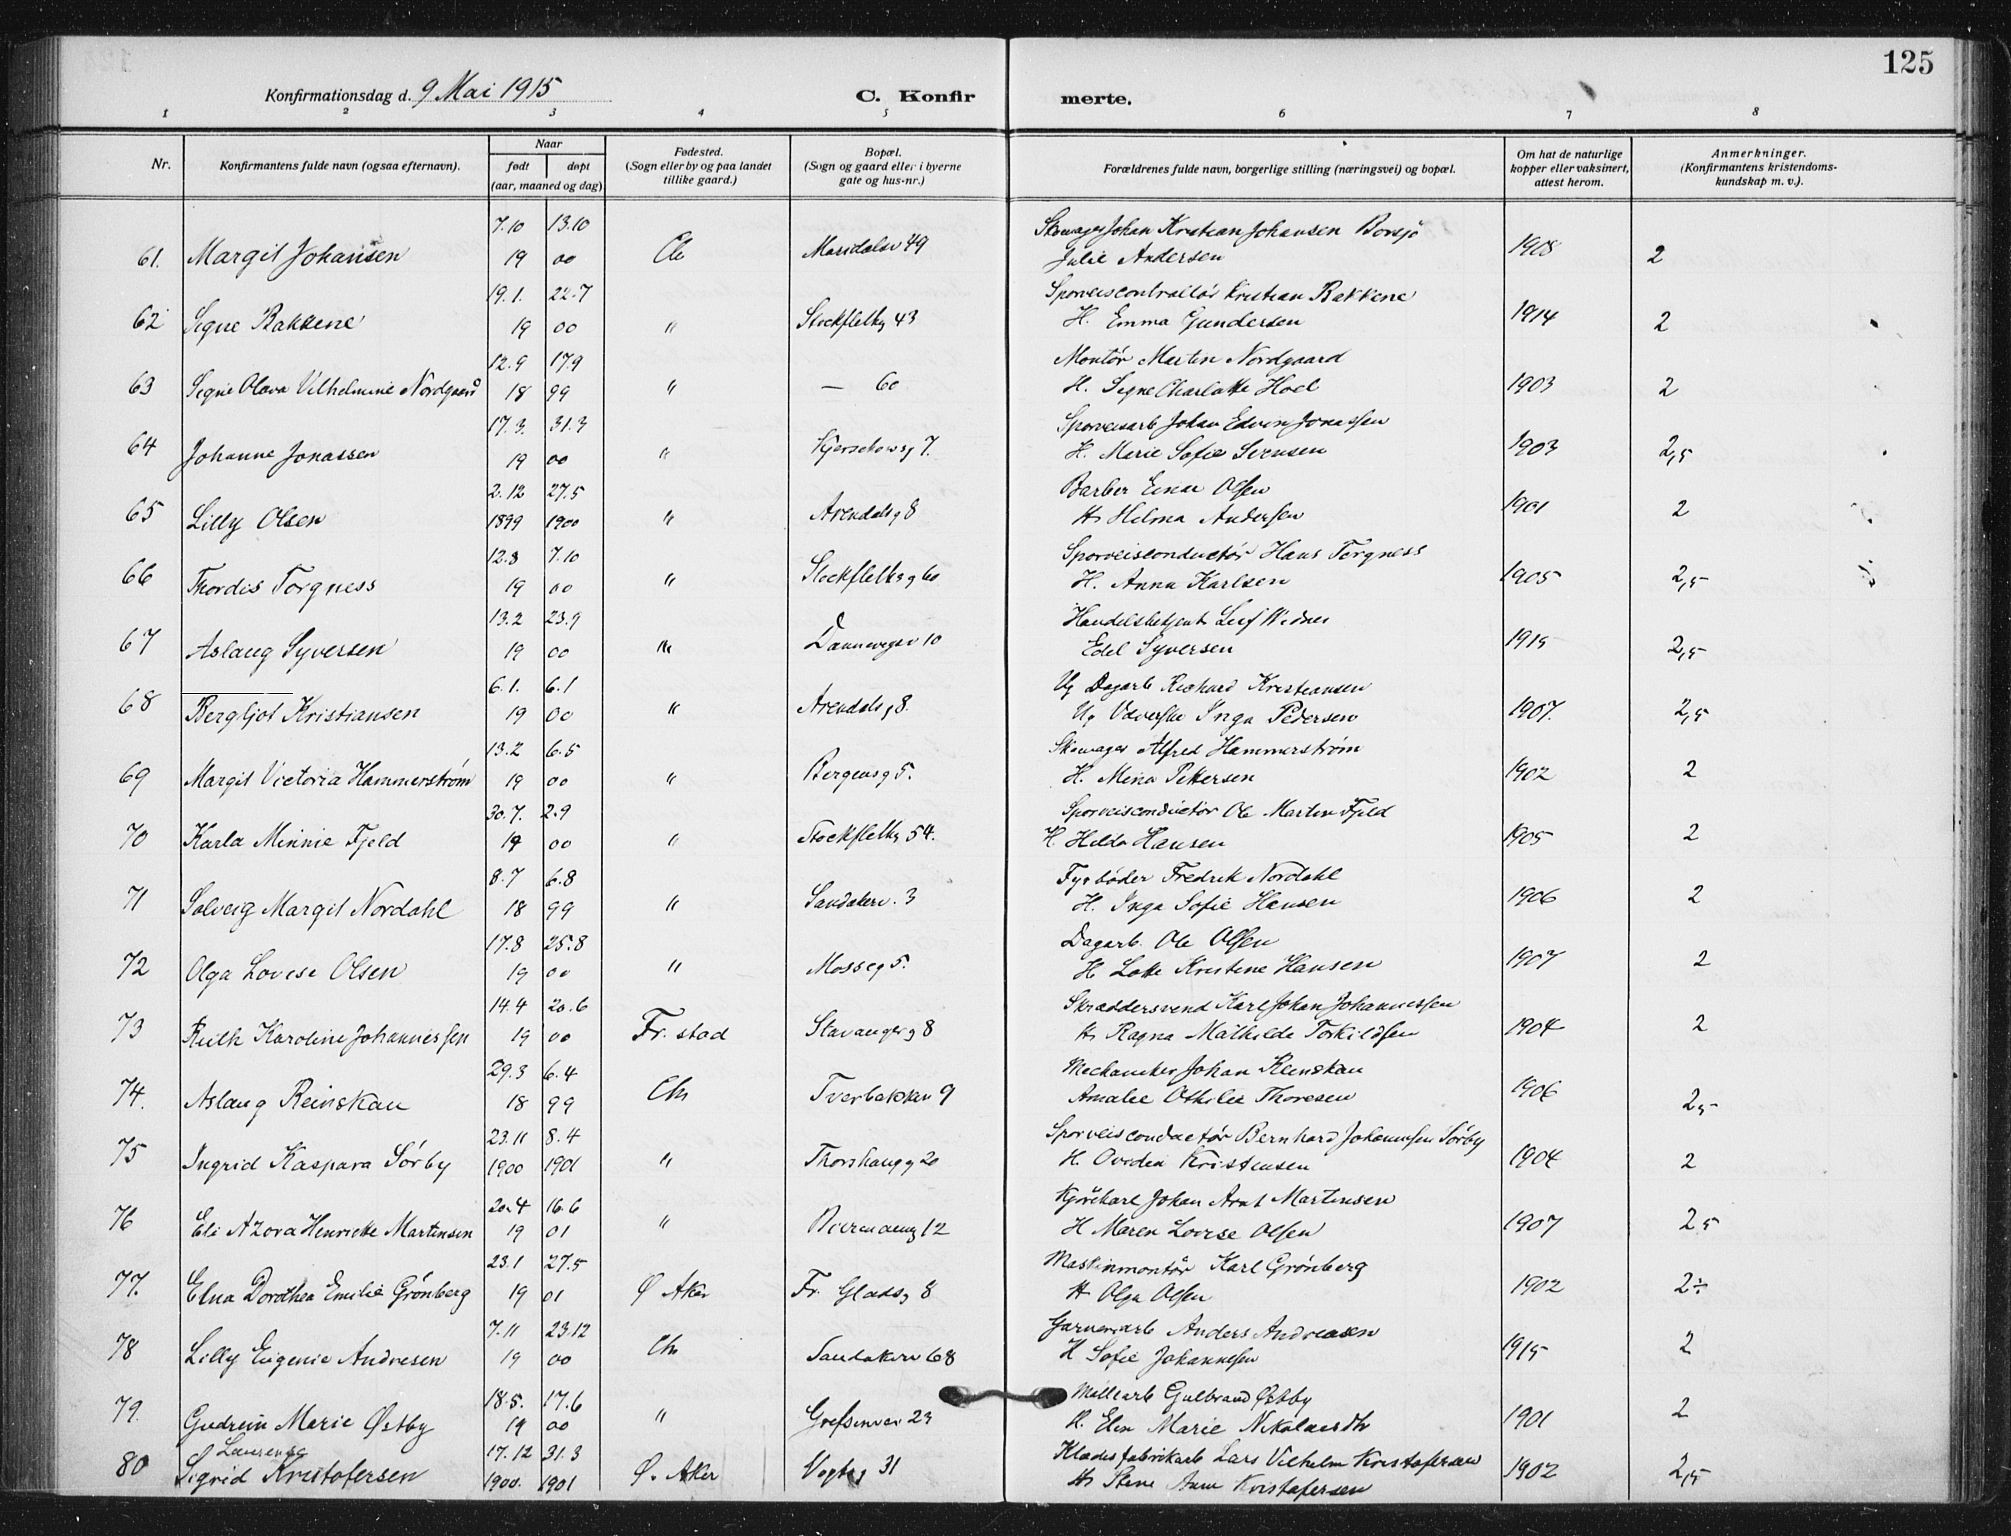 125
Konfirmationsdag d. 9 Mai 1915
C. Konfirmerte.
1 2 3 4 5 6 7 8
Nr.
Konfirmantens fulde navn (ogsaa efternavn).
Naar
født døpt
(aar, maaned og dag)
Fødested.
(Sogn eller by og paa landet
tillike gaard.)
Bopæl.
(Sogn og gaard eller i byerne
gate og hus-nr.)
Forældrenes fulde navn, borgerlige stilling (næringsvei) og bopæl.
Om hat de naturlige
kopper eller vaksinert,
attest herom.
Anmerkninger.
(Konfirmantens kristendoms-
kundskap m. v.).
7.10 13.10 Johan Kristian Johansen Borsjø
61. Margit Johansen 19 00 Ch Maridalsv 49 Julie Andersen 1908 2
19.1. 22.7 Sporveiscontrollør Kristian Bakkene
62 Signe Bakkene 19 00 " Stockflethg 43 H. Emma Gundersen 1914 2
12.9 17.9 Montør Martin Nordgaard
63 Signe Olava Vilhelmine Nordgaard 18 99 " — 60 H. Signe Charlotte Hoel 1903 2
17.3. 31.3 Sporveisarb Johan Edvin Jonassen
64 Johanne Jonassen 19 00 " 7. H. Marie Sofie Svensen 1903 2,5
2.12 27.5 Barber Einar Olsen
65 Lilly Olsen 1899 1900 " Arendalsg 8 H Helma Andersen 1901 2
12.8 7.10 Sporveisconductør Hans Torgness
66 Thordis Torgness 19 00 " Stockflethsg 60 H. Anna Karlsen 1905 2,5
13.2 23.9 Handelsbetjent Leif Widner
67 Aslaug Syversen 19 00 " Dannevigsv 10 Edel Syversen 1915 2,5
6.1. 6.1 Ug Dagarb Richard Kristiansen
68 Bergljot Kristiansen 19 00 " Arendalsg 8. Ug Inga Pedersen 1907. 2,5
13.2 6.5 Skomager Alfred Hammerstrøm
69 Margit Victoria Hammerstrøm 19 00 " Bergensg 5. H. Mina Pettersen 1902 2
30.7. 2.9 Sporveisconductør Ole Martin Fjeld
70 Karla Minnie Fjeld 19 00 " Stockflethg 54. H Hilda Hansen 1905 2
8.7 6.8 Fyrbøder Fredrik Nordahl
71 Solveig Margit Nordahl 18 99 " Sandakerv. 3 H. Inga Sofie Hansen 1906 2
17.8 25.8 Dagarb. Ole Olsen
72 Olga Lovise Olsen 19 00 " Mosseg 5. H Lotte Kristine Hansen 1907 2
14.4 20.6 Skræddersvend Karl Johan Johannessen
73 Ruth Karoline Johannessen 19 00 Fr. stad Stavangerg 8 H Ragna Mathilde Torkildsen 1904 2
29.3 6.4 Mechaniker Johan Reinskau
74. Aslaug Reinskau 18 99 Ch Tverbakken 9 Amalie Othilie Thoresen 1906 2,5
23.11 8.4 Sporveisconductør Bernhard Johannesen Sørby
75 Ingrid Kaspara Sørby 1900 1901 " Thorshaugg 20 H. Ovidia Kristensen 1904 2
20.4 16.6 Kjørekarl Johan Arnt Martinsen
76 Eli Azora Henriette Martinsen 19 01 " Biermannsg 12 H Maren Lovise Olsen 1907 2 5
23.1 27.5 Maskinmontør Karl Grønberg
77. Elna Dorothea Emilie Grønberg 19 01 Ø Aker Fr. Gladsg 8 H Olga Olsen 1902 2÷
7.11 23.12 Garveriarb Anders Andresen
78 Lilly Eugenie Andresen 19 00 Ch Sandakerv 68 H Sofie Johannesen 1915 2
18.5. 17.6 Møllearb Gulbrand Østby
79. Gudrun Marie Østby 19 00 " Grefsenvei 23 H. Elen Marie Nikolaisdtr 1901 2
Laurensa 17.12 31.3 Klædesfabrikarb Lars Vilhelm Kristofersen
80 Sigrid Kristofersen 1900. 1901 Ø. Aker Vogtsg 31 H Stine Anne Kristofersen 1902 2,5